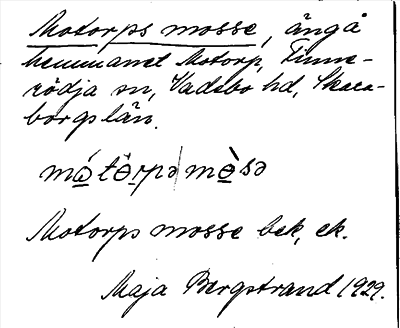 Motorps mosse, ångå
hemmanet Motorp, Finne-
rödja sn, Vadsbo hd, Skara-
borgs län.
Motorps mosse bek, ek.
Maja Bergstrand 1929.